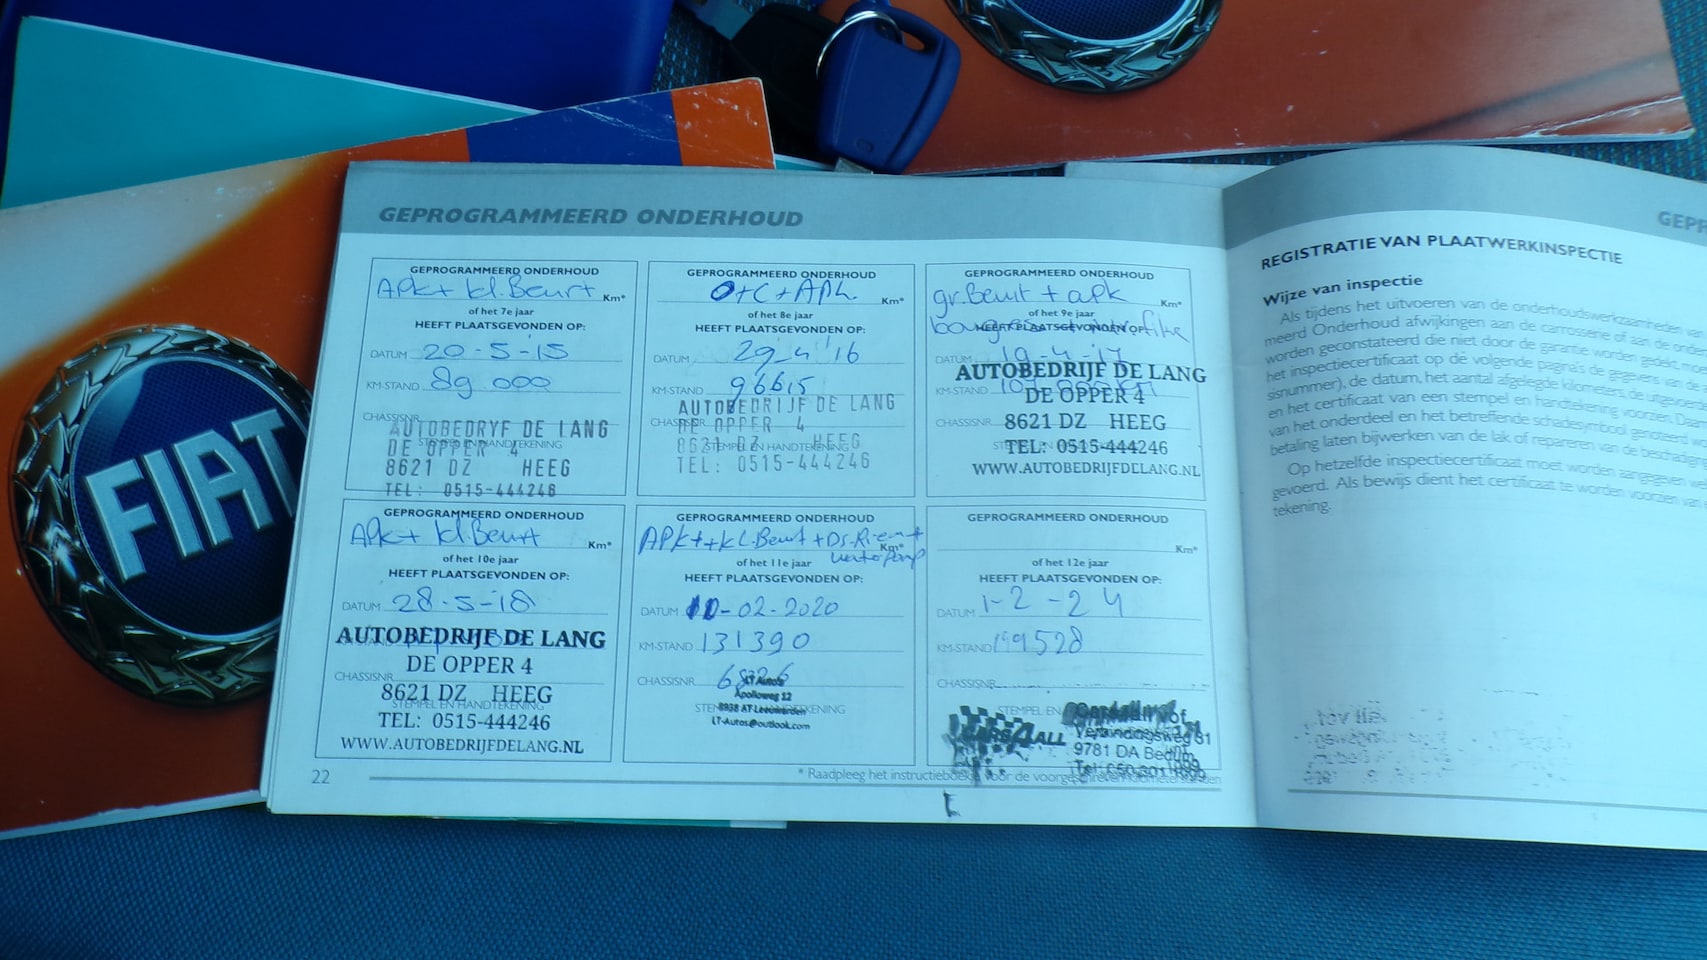 FIAT
GEPROGRAMMEERD ONDERHOUD
GEPROGRAMMEERD ONDERHOUD
APK + kl. Beurt
Km*
of het 7e jaar
HEEFT PLAATSGEVONDEN OP:
DATUM 20-5-15
KM-STAND 89 000
CHASSISNR.
AUTOBEDRYF DE LANG
STEMPEL EN HANDTEKENING
DE OPPER 4
8621 DZ HEEG
TEL: 0515-444246
GEPROGRAMMEERD ONDERHOUD
O+C+APK
Km*
of het 8e jaar
HEEFT PLAATSGEVONDEN OP:
DATUM 29 4 '16
KM-STAND 96615
AUTOBEDRIJF DE LANG
CHASSISNR.
DE OPPER 4
STEMPEL EN HANDTEKENING
8621 DZ HEEG
TEL: 0515-444246
GEPROGRAMMEERD ONDERHOUD
gr. Beurt + apk
Km*
of het 9e jaar
HEEFT PLAATSGEVONDEN OP:
DATUM 19-4-17
AUTOBEDRIJF DE LANG
KM-STAND
DE OPPER 4
CHASSISNR.
8621 DZ HEEG
TEL: 0515-444246
WWW.AUTOBEDRIJFDELANG.NL
GEPROGRAMMEERD ONDERHOUD
APK + kl. Beurt
Km*
of het 10e jaar
HEEFT PLAATSGEVONDEN OP:
DATUM 28-5-18
AUTOBEDRIJF DE LANG
DE OPPER 4
CHASSISNR.
8621 DZ HEEG
STEMPEL EN HANDTEKENING
TEL: 0515-444246
WWW.AUTOBEDRIJFDELANG.NL
GEPROGRAMMEERD ONDERHOUD
APK + + kl. Beurt + Ds. Riem +
Km*
waterpomp
of het 11e jaar
HEEFT PLAATSGEVONDEN OP:
DATUM -02-2020
KM-STAND 131390
CHASSISNR.
LT Auto's
Apolloweg 12
STEMPEL EN HANDTEKENING
8938 AT Leeuwarden
LT-Autos@outlook.com
GEPROGRAMMEERD ONDERHOUD
Km*
of het 12e jaar
HEEFT PLAATSGEVONDEN OP:
DATUM 1-2-24
KM-STAND 149528
CHASSISNR.
STEMPEL EN
CARS4ALL
Verbindingsweg 31
9781 DA Bedum
22
* Raadpleeg het instructieboekje voor de voorgeschreven kilometerstanden
GEPR
REGISTRATIE VAN PLAATWERKINSPECTIE
Wijze van inspectie
Als tijdens het uitvoeren van de onderhoudswerkzaamheden van
meerd Onderhoud afwijkingen aan de carrosserie of aan de onde
worden geconstateerd die niet door de garantie worden gedekt, moe
het inspectiecertificaat op de volgende pagina's de gegevens van de
sisnummer), de datum, het aantal afgelegde kilometers, de uitgevoer
en het certificaat van een stempel en handtekening voorzien. Daar
van het onderdeel en het betreffende schadesymbool genoteerd w
betaling laten bijwerken van de lak of repareren van de beschadig
Op hetzelfde inspectiecertificaat moet worden aangegeven wel
gevoerd. Als bewijs dient het certificaat te worden voorzien van
tekening.